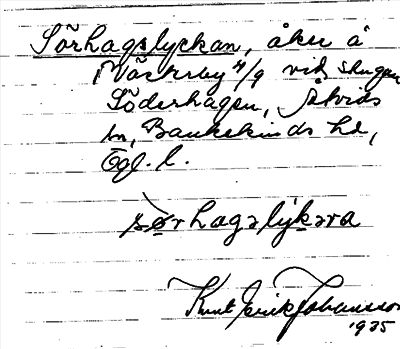 Sörhagslyckan, åker å
Väckerby 4/9 vid skugan
Söderhagen, Åtvids
sn, Bankekinds hd,
Ögl. l.
sørhagslýkəra
Knut Erik Johansson
1935